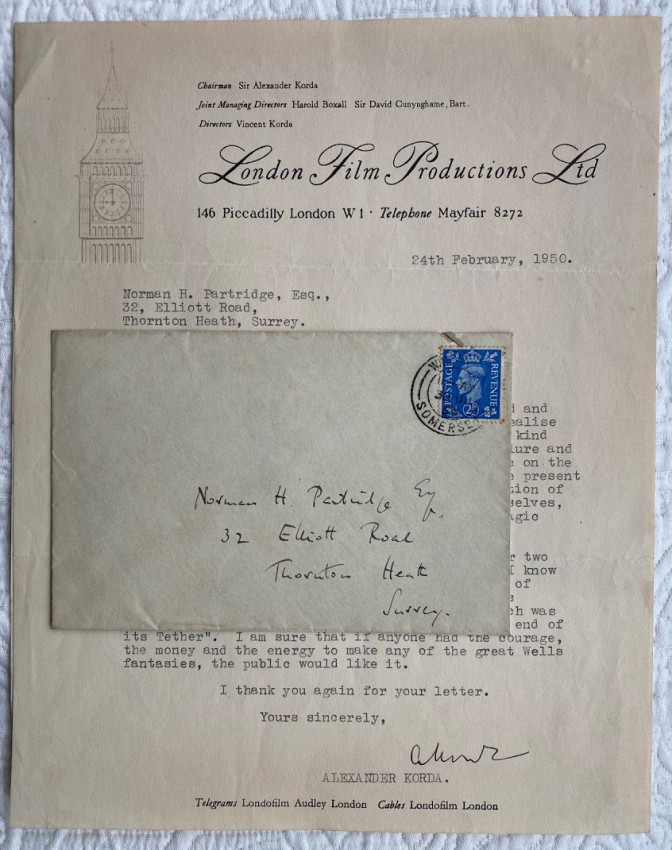 Chairman Sir Alexander Korda
Joint Managing Directors Harold Boxall Sir David Cunynghame, Bart.
Directors Vincent Korda
London Film Productions Ltd
146 Piccadilly London W1 · Telephone Mayfair 8272
24th February, 1950.
Norman H. Partridge, Esq.,
32, Elliott Road,
Thornton Heath, Surrey.
POSTAGE REVENUE
SOMERSET
Norman H. Partridge Esq.
32 Elliott Road
Thornton Heath
Surrey.
and
kind
and
on the
present
of
two
I know
of
was
end of
its Tether". I am sure that if anyone had the courage,
the money and the energy to make any of the great Wells
fantasies, the public would like it.
I thank you again for your letter.
Yours sincerely,
ALEXANDER KORDA.
Telegrams Londofilm Audley London Cables Londofilm London